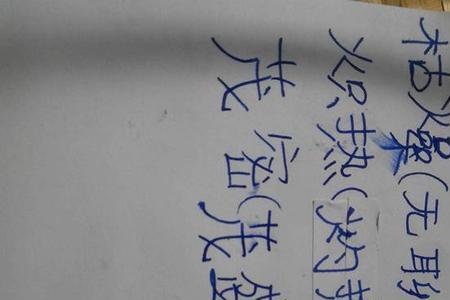 枯燥(无聊
炽热(灼热
茂密(茂盛